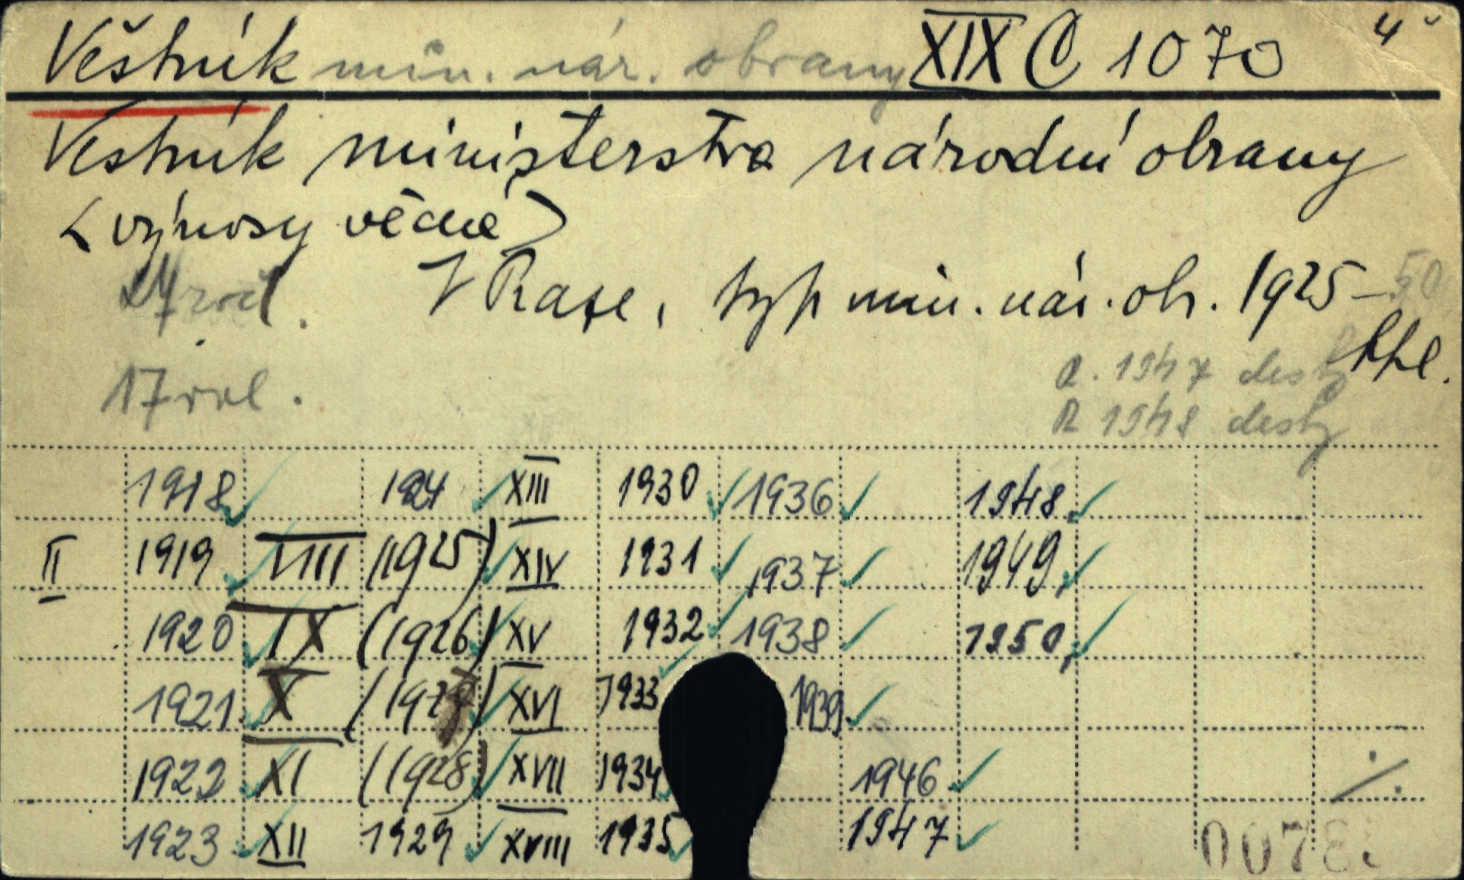 Věstník min. nár. obrany XIX C 1070 4°
Věstník ministerstva národní obrany
(výnosy věcné)
V Praze, typ min. nár. obr. 1925–50
17 roč.
R. 1947 desky
R 1948 desky
1918 1924 XIII 1930 1936 1948
II 1919 VIII (1925) XIV 1931 1937 1949
1920 IX (1926) XV 1932 1938 1950
1921 X (1927) XVI 1933 1939
1922 XI (1928) XVII 1934 1946 ./.
1923 XII 1929 XVIII 1935 1947